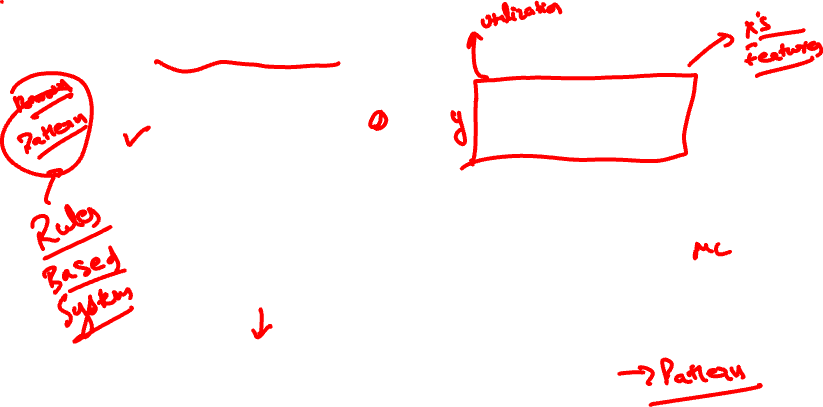 utilization
x's
features
Pattern
y
Rules
Based
System
ML
→ Pattern